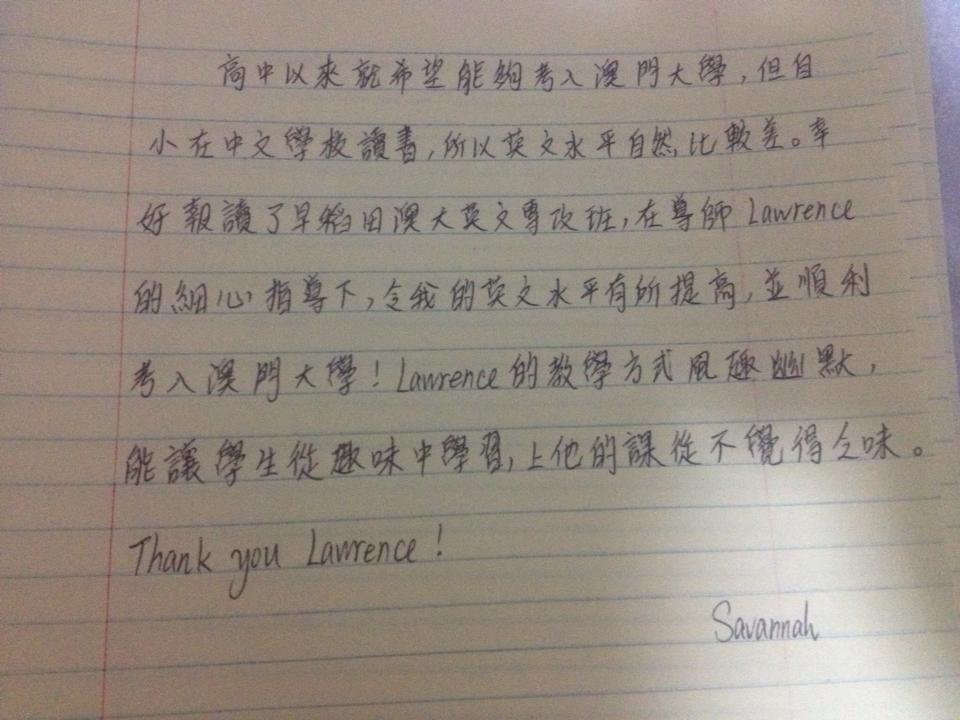 高中以來就希望能夠考入澳門大學，但自
小在中文學校讀書，所以英文水平自然比較差。幸
好報讀了早稻田澳大英文專攻班，在導師 Lawrence
的細心指導下，令我的英文水平有所提高，並順利
考入澳門大學！Lawrence的教學方式風趣幽默，
能讓學生從趣味中學習，上他的課從不覺得乏味。
Thank you Lawrence！
Savannah